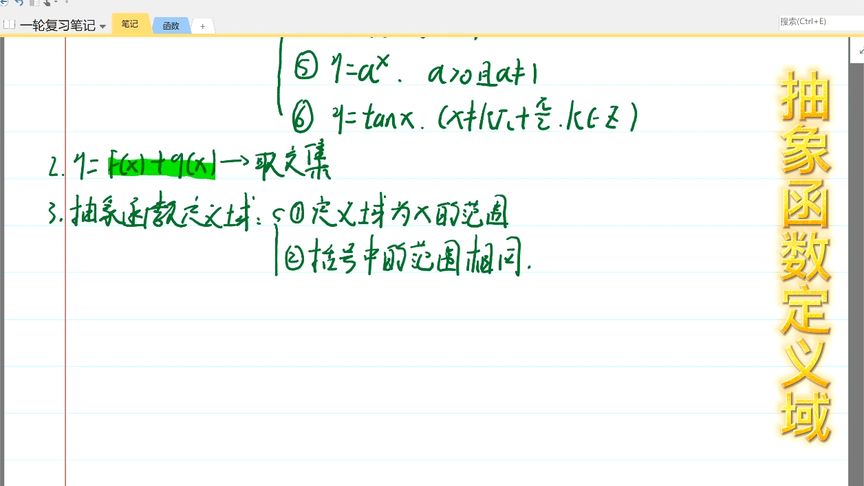 一轮复习笔记
笔记
函数
搜索(Ctrl+E)
⑤ y=aˣ. a>0且a≠1
⑥ y=tanx. (x≠kπ+π/2. k∈Z)
2. y=f(x)+g(x)→取交集
3. 抽象函数定义域: ①定义域为x的范围
②括号中的范围相同.
抽象函数定义域